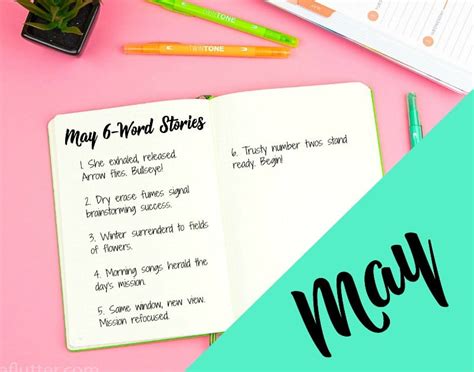 TONE
TONE
May 6-Word Stories
1. She exhaled, released.
Arrow flies. Bullseye!
2. Dry erase fumes signal
brainstorming success.
3. Winter surrenderd to fields
of flowers.
4. Morning songs herald the
day's mission.
5. Same window, new view.
Mission refocused.
6. Trusty number twos stand
ready. Begin!
May
aflutter.com